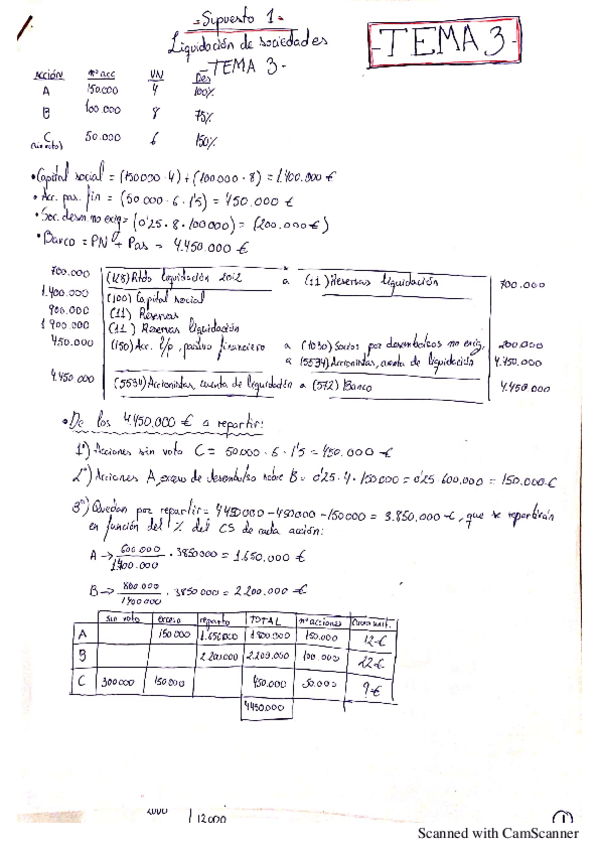 - Supuesto 1 -
Liquidación de sociedades
- TEMA 3 -
- TEMA 3 -
Acción nº acc VN Des
A 150.000 4 100%
B 100.000 8 75%
C 50.000 6 150%
(sin voto)
• Capital social = (150000 · 4) + (100000 · 8) = 1.400.000 €
• Acc. pas. fin = (50000 · 6 · 1'5) = 450.000 €
• Soc. desem no exig = (0'25 · 8 · 100000) = (200.000 €)
• Banco = PN + Pas = 4.450.000 €
700.000 (128) Rtdo liquidación 2012 a (11) Reservas liquidación 700.000
1.400.000 (100) Capital social
900.000 (11) Reservas
1 900.000 (11) Reservas liquidación
450.000 (150) Acc. l/p, pasivo financiero a (1030) Socios por desembolsos no exig, 200.000
a (5534) Accionistas, cuenta de liquidación 4.450.000
4.450 000 (5534) Accionistas, cuenta de liquidación a (572) Banco 4.450 000
• De los 4.450.000 € a repartir:
1º) Acciones sin voto C = 50000 · 6 · 1'5 = 450.000 €
2º) Acciones A, exceso de desembolso sobre B = 0'25 · 4 · 150000 = 0'25 · 600.000 = 150.000 €
3º) Quedan por repartir = 4450000 - 450000 - 150000 = 3.850.000 €, que se repartirán
en función del % del CS de cada acción:
A → 600.000 / 1400.000 · 3850000 = 1.650.000 €
B → 800 000 / 1400000 · 3850000 = 2.200.000 €
sin voto exceso reparto TOTAL nº acciones Cuota unit.
A 150 000 1.650000 1 800.000 150.000 12 €
B 2 200000 2.200.000 100.000 22 €
C 300000 150000 450.000 50.000 9 €
4450000
12000
1
Scanned with CamScanner